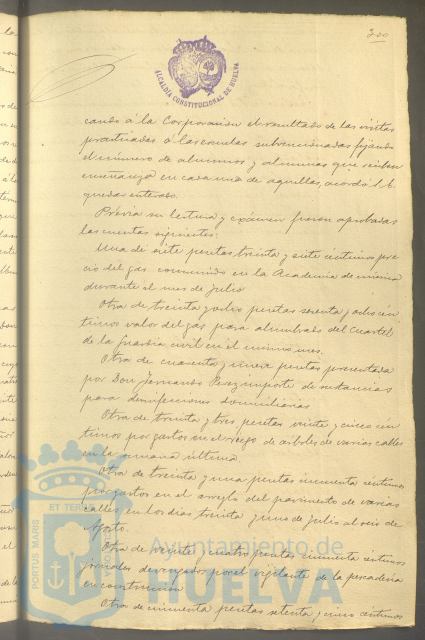 200
ALCALDÍA CONSTITUCIONAL DE HUELVA
cando á la Corporación el resultado de las visitas
practicadas á las escuelas subvencionadas fijando
el número de alumnos y alumnas que reciben
enseñanza en cada una de aquellas, acordó S. E.
quedar enterado.
Prévia su lectura y exámen fueron aprobadas
las cuentas siguientes:
Una de siete pesetas treinta y siete céntimos pre
cio del gas consumido en la Academia de música
durante el mes de Julio
Otra de treinta y ocho pesetas setenta y dos cén
timos valor del gas para alumbrado del cuartel
de la Guardia civil en el mismo mes.
Otra de cuarenta y nueve pesetas presentada
por Don Fernando Perez importe de sustancias
para desinfecciones domiciliarias
Otra de treinta y tres pesetas veinte y cinco cén
timos por gastos en el riego de árboles de varias calles
en la semana última
Otra de treinta y una pesetas cincuenta céntimos
por gastos en el arreglo del pavimento de varias
calles en los dias treinta y uno de Julio al seis de
Agosto.
Otra de veinte y cuatro pesetas cincuenta céntimos
jornales devengados por el vigilante de la pescadería
en construcción
Otra de cincuenta pesetas setenta y cinco céntimos
PORTUS MARIS ET TERRAE
Ayuntamiento de
HUELVA